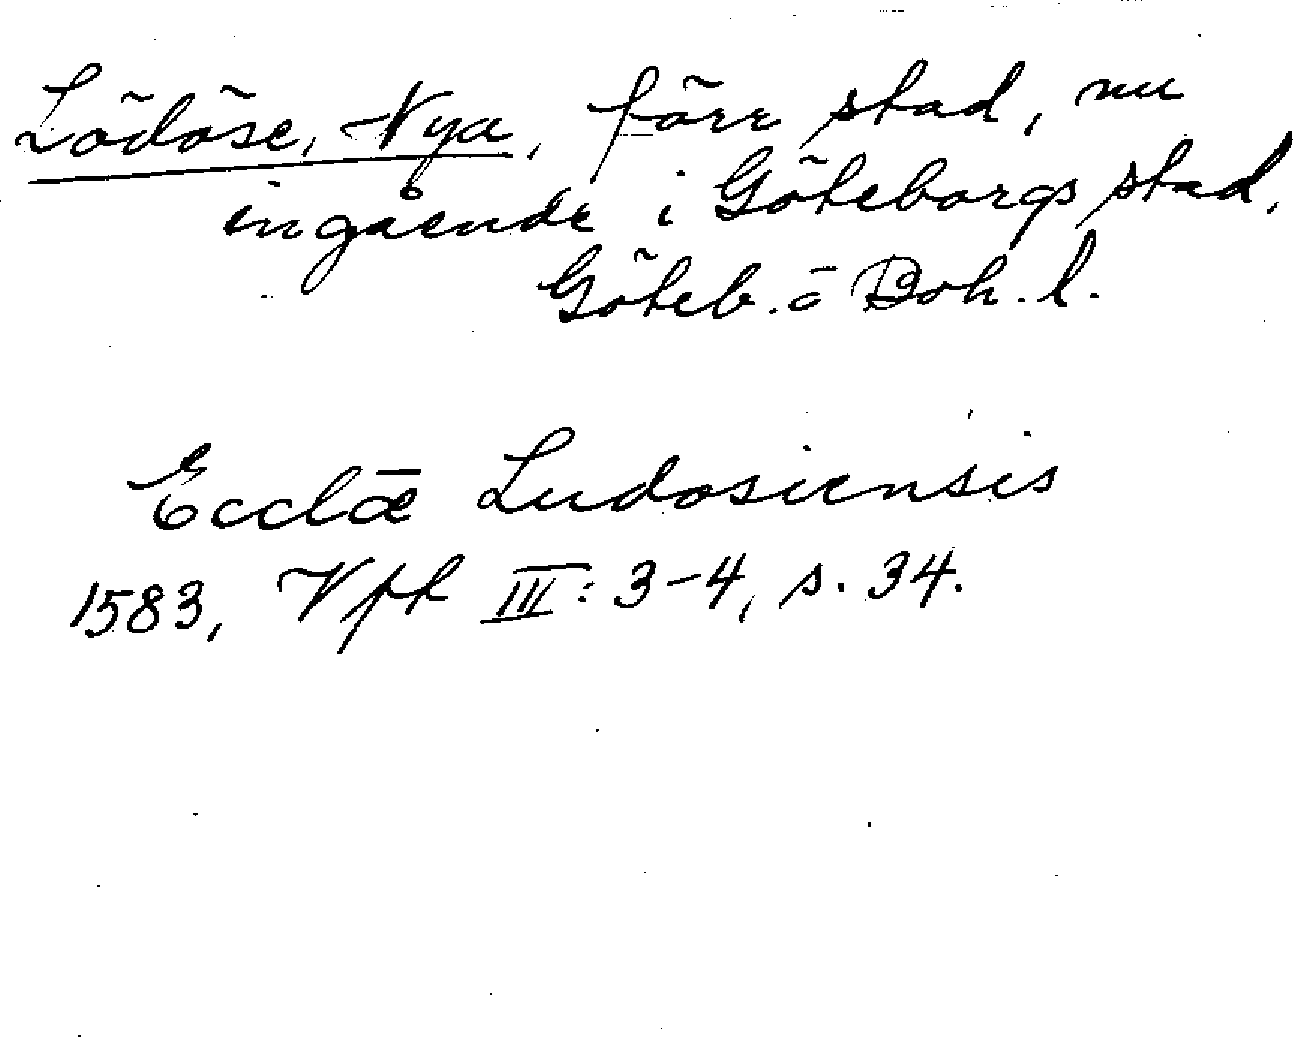 Lödöse, Nya, förr stad, nu
ingående i Göteborgs stad,
Göteb. o Boh. l.
Ecclæ Ludosiensis
1583, Vfk III: 3-4, s. 34.